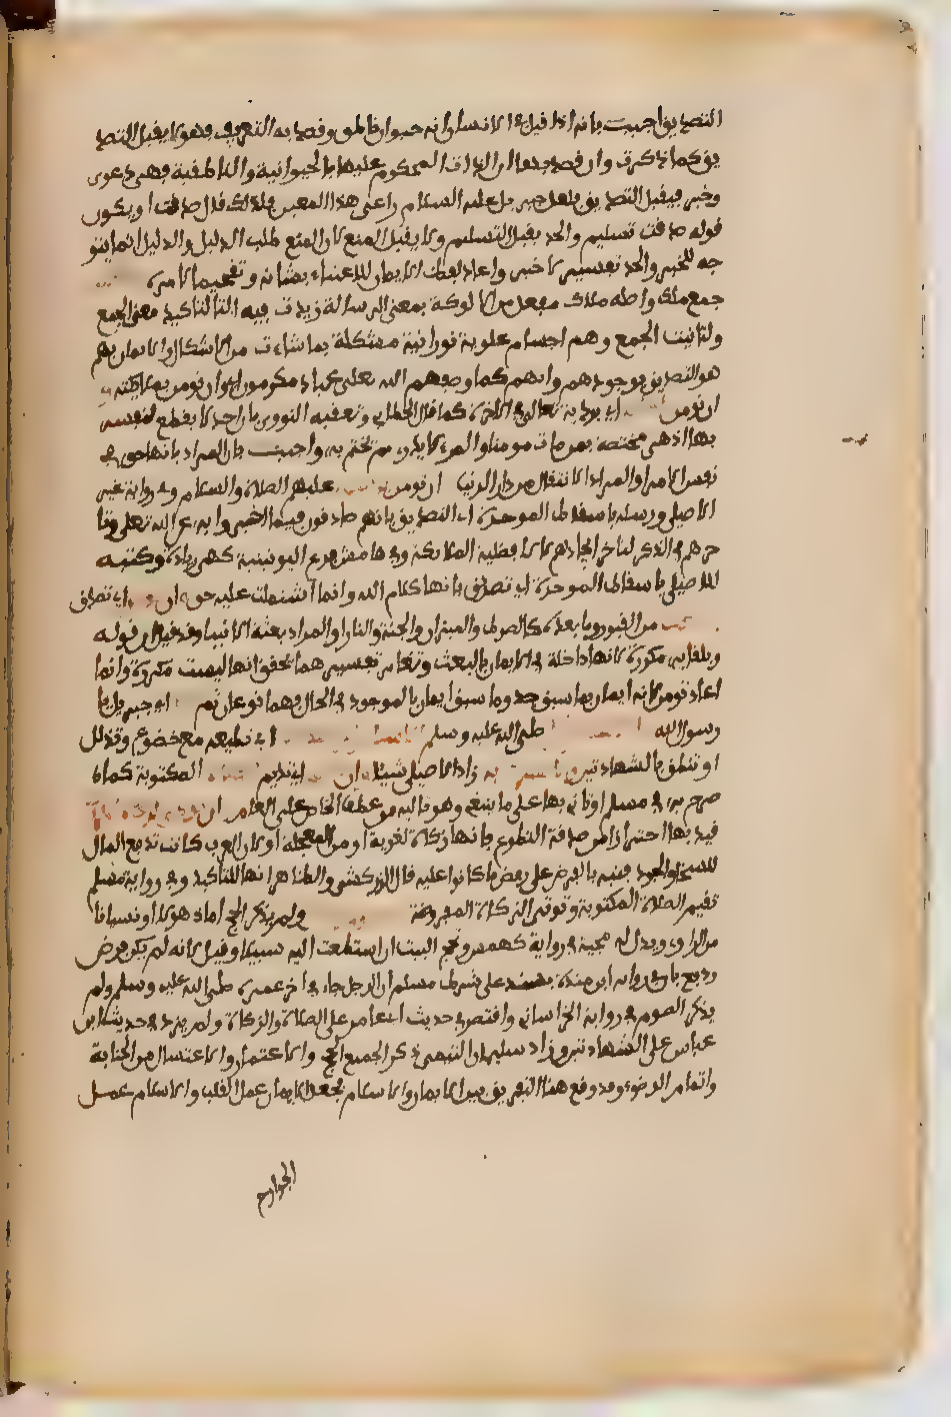 التصديق اجيب بانه اذا قيل في الانسان انه حيوان ناطق وقصد به التعريف فهو لا يقبل التصد
يق كما ذكرت وان قصد به ان الذات المحكوم عليها بالحيوانية والناطقية فهي دعوى
وخبر فيقبل التصديق فلعل جبريل عليه السلام راعى هذا المعنى فلذلك قال صدقت او يكون
قوله صدقت تسليم والحد يقبل التسليم ولا يقبل المنع لان المنع طلب الدليل والدليل انما يتو
جه للخبر والحد تفسير لا خبر واعاد لفظ الايمان للاعتناء بشانه وتفخيما لامره
جمع ملك واصله ملاك مفعل من الالوكة بمعنى الرسالة زيدت فيه التا لتاكيد معنى الجمع
ولتانيث الجمع وهم اجسام علوية نورانية متشكلة بما شاءت من الاشكال والايمان بهم
هو التصديق بوجودهم وانهم كما وصفهم الله تعلى عباد مكرمون اي وان تومن بملائكته و
ان تومن اي بروية تعالى في الاخرة كما قال الخطابي وتعقبه النووي بان احدا لا يقطع لنفسه
بها اذ هي مختصة بمن مات مومنا والمرء لا يدري بم يختم به واجيب بان المراد بانها حق في
نفس الامر او المراد الانتقال من دار الدنيا ان تومن عليهم الصلاة والسلام وفي رواية غير
الاصيلي ورسله باسقاط الموحدة اي التصديق بانهم صادقون فيما اخبروا به عن الله تعلى وتا
خرهم في الذكر لتاخر ايجادهم لا لافضلية الملائكة وفي هامش فرع اليونينية كهي زيادة وكتبه
للاصيلي باسقاط الموحدة اي تصدق بانها كلام الله وانما اشتملت عليه حق ان اي تصدق
من القبور وما بعده كالصراط والميزان والجنة والنار او المراد بعثة الانبيا وقد قيل ان قوله
وبلقايه مكررة لانها داخلة في الايمان بالبعث وتغاير تفسيرهما يحقق انها ليست مكررة وانما
اعاد تومن لانه ايمان بما سيوجد وما سبق ايمان بالموجود في الحال فهما نوعان ثم اي جبريل يا
رسول الله صلى الله عليه وسلم اي تطيعه مع خضوع وتذلل
او تنطق بالشهادتين به زاد الاصيلي شيئا ان اي تديم المكتوبة كما
صرح به في مسلم او تاتي بها على ما ينبغي وهو تاليه من عطف الخاص على العام ان
قيد بها احترازا من صدقة التطوع بانها زكاة لغوية او من المعجلة او لان العرب كانت تدفع المال
للسخا والجود فنبه بالفرض على رفض ما كانوا عليه قال الزركشي والظاهر انها للتاكيد وفي رواية مسلم
تقيم الصلاة المكتوبة وتوتي الزكاة المفروضة ولم يذكر الحج اما ذهولا او نسيانا
من الراوي ويدل له مجيئه في رواية كهمس وتحج البيت ان استطعت اليه سبيلا وقيل لانه لم يكن فرض
ودفع بان في رواية ابن مندة بسند على شرط مسلم ان الرجل جاء في اخر عمره صلى الله عليه وسلم ولم
يذكر الصوم في رواية الخراساني واقتصر في حديث ابي عامر على الصلاة والزكاة ولم يزد في حديث ابن
عباس على الشهادتين وزاد سليمان التيمي ذكر الجميع الحج والاعتمار والاغتسال من الجنابة
واتمام الوضوء وقد وقع هنا التفريق بين الايمان والاسلام بجعل الايمان عمل القلب والاسلام عمل
الجوارح